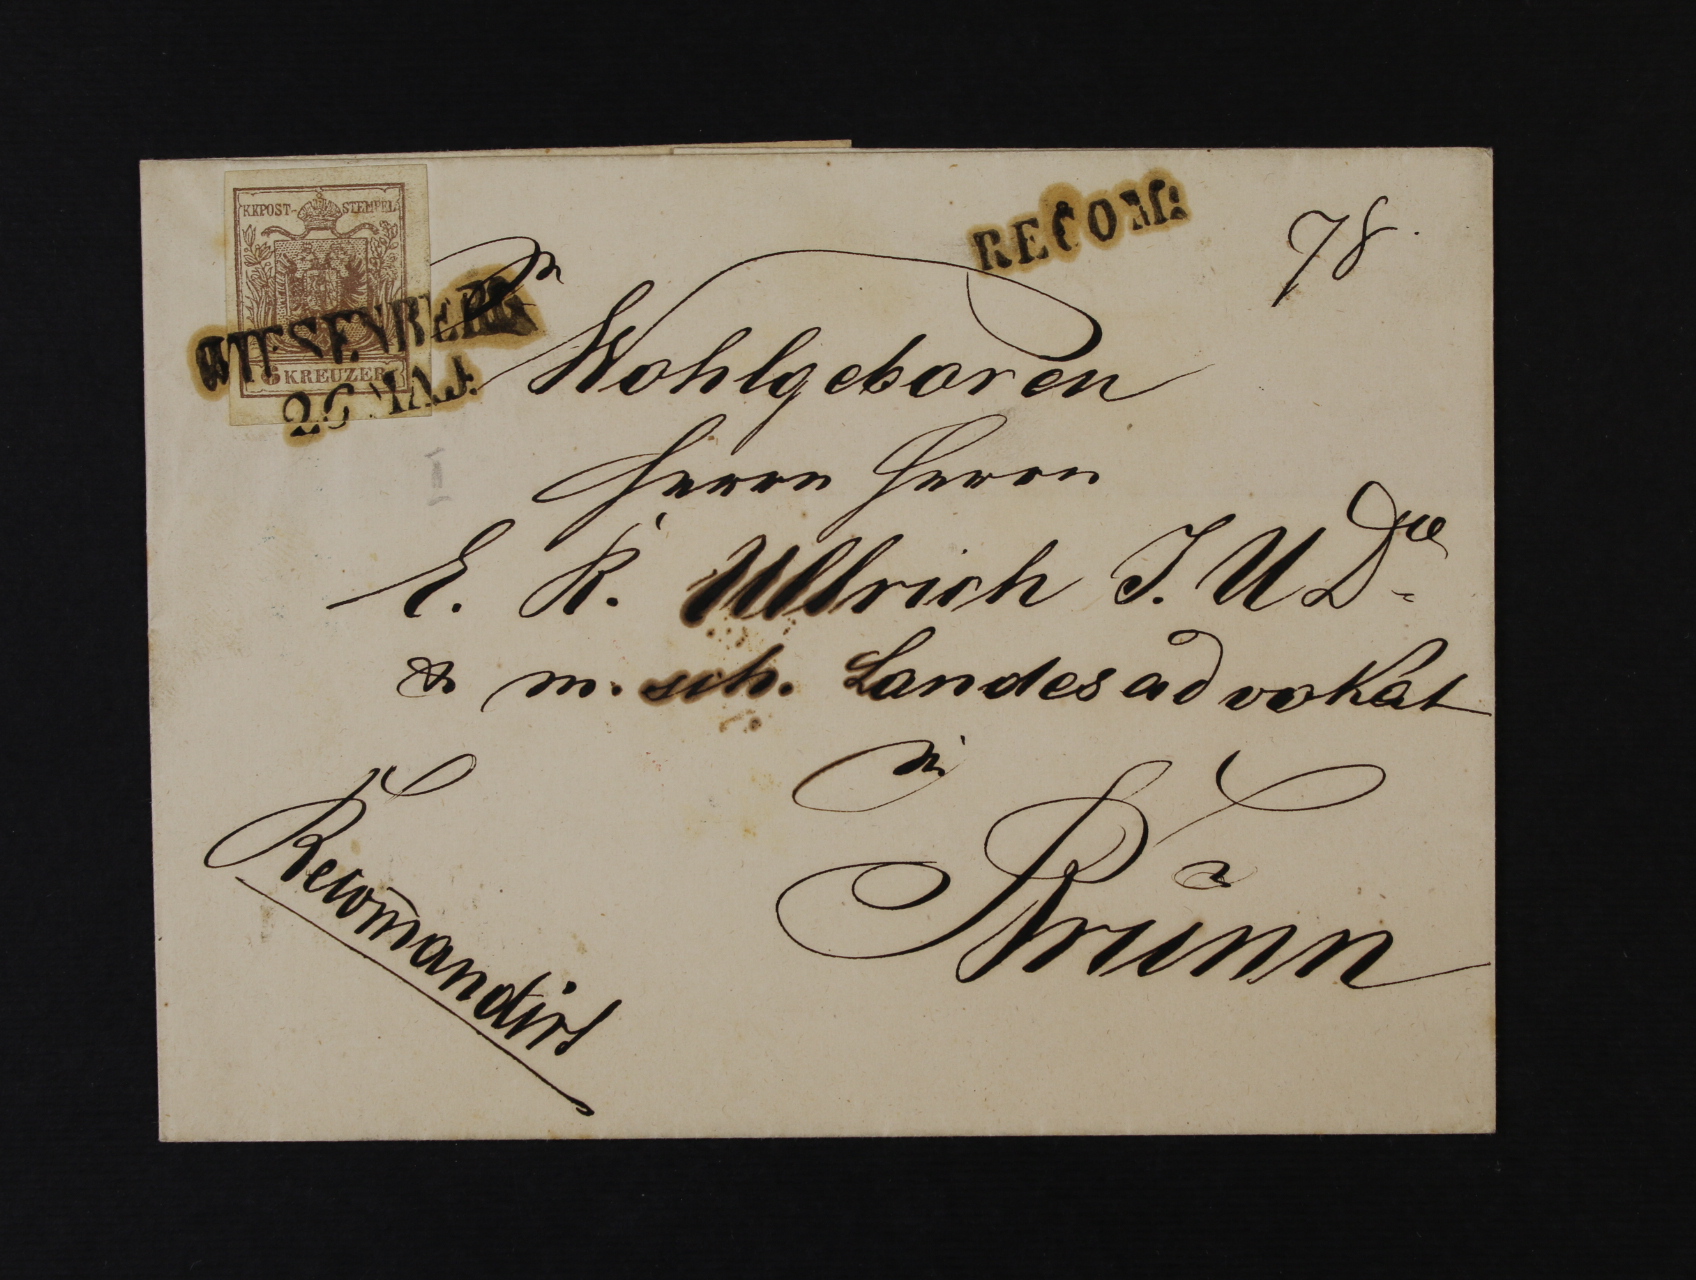 KKPOST-STEMPEL
6 KREUZER
WIESENBERG
26 MAJ.
RECOM:
78.
Wohlgeboren
Herrn Herrn
E. K. Ullrich J. U Dre
& m. sch. Landesadvokat
in
Brünn
Recom̄andirt